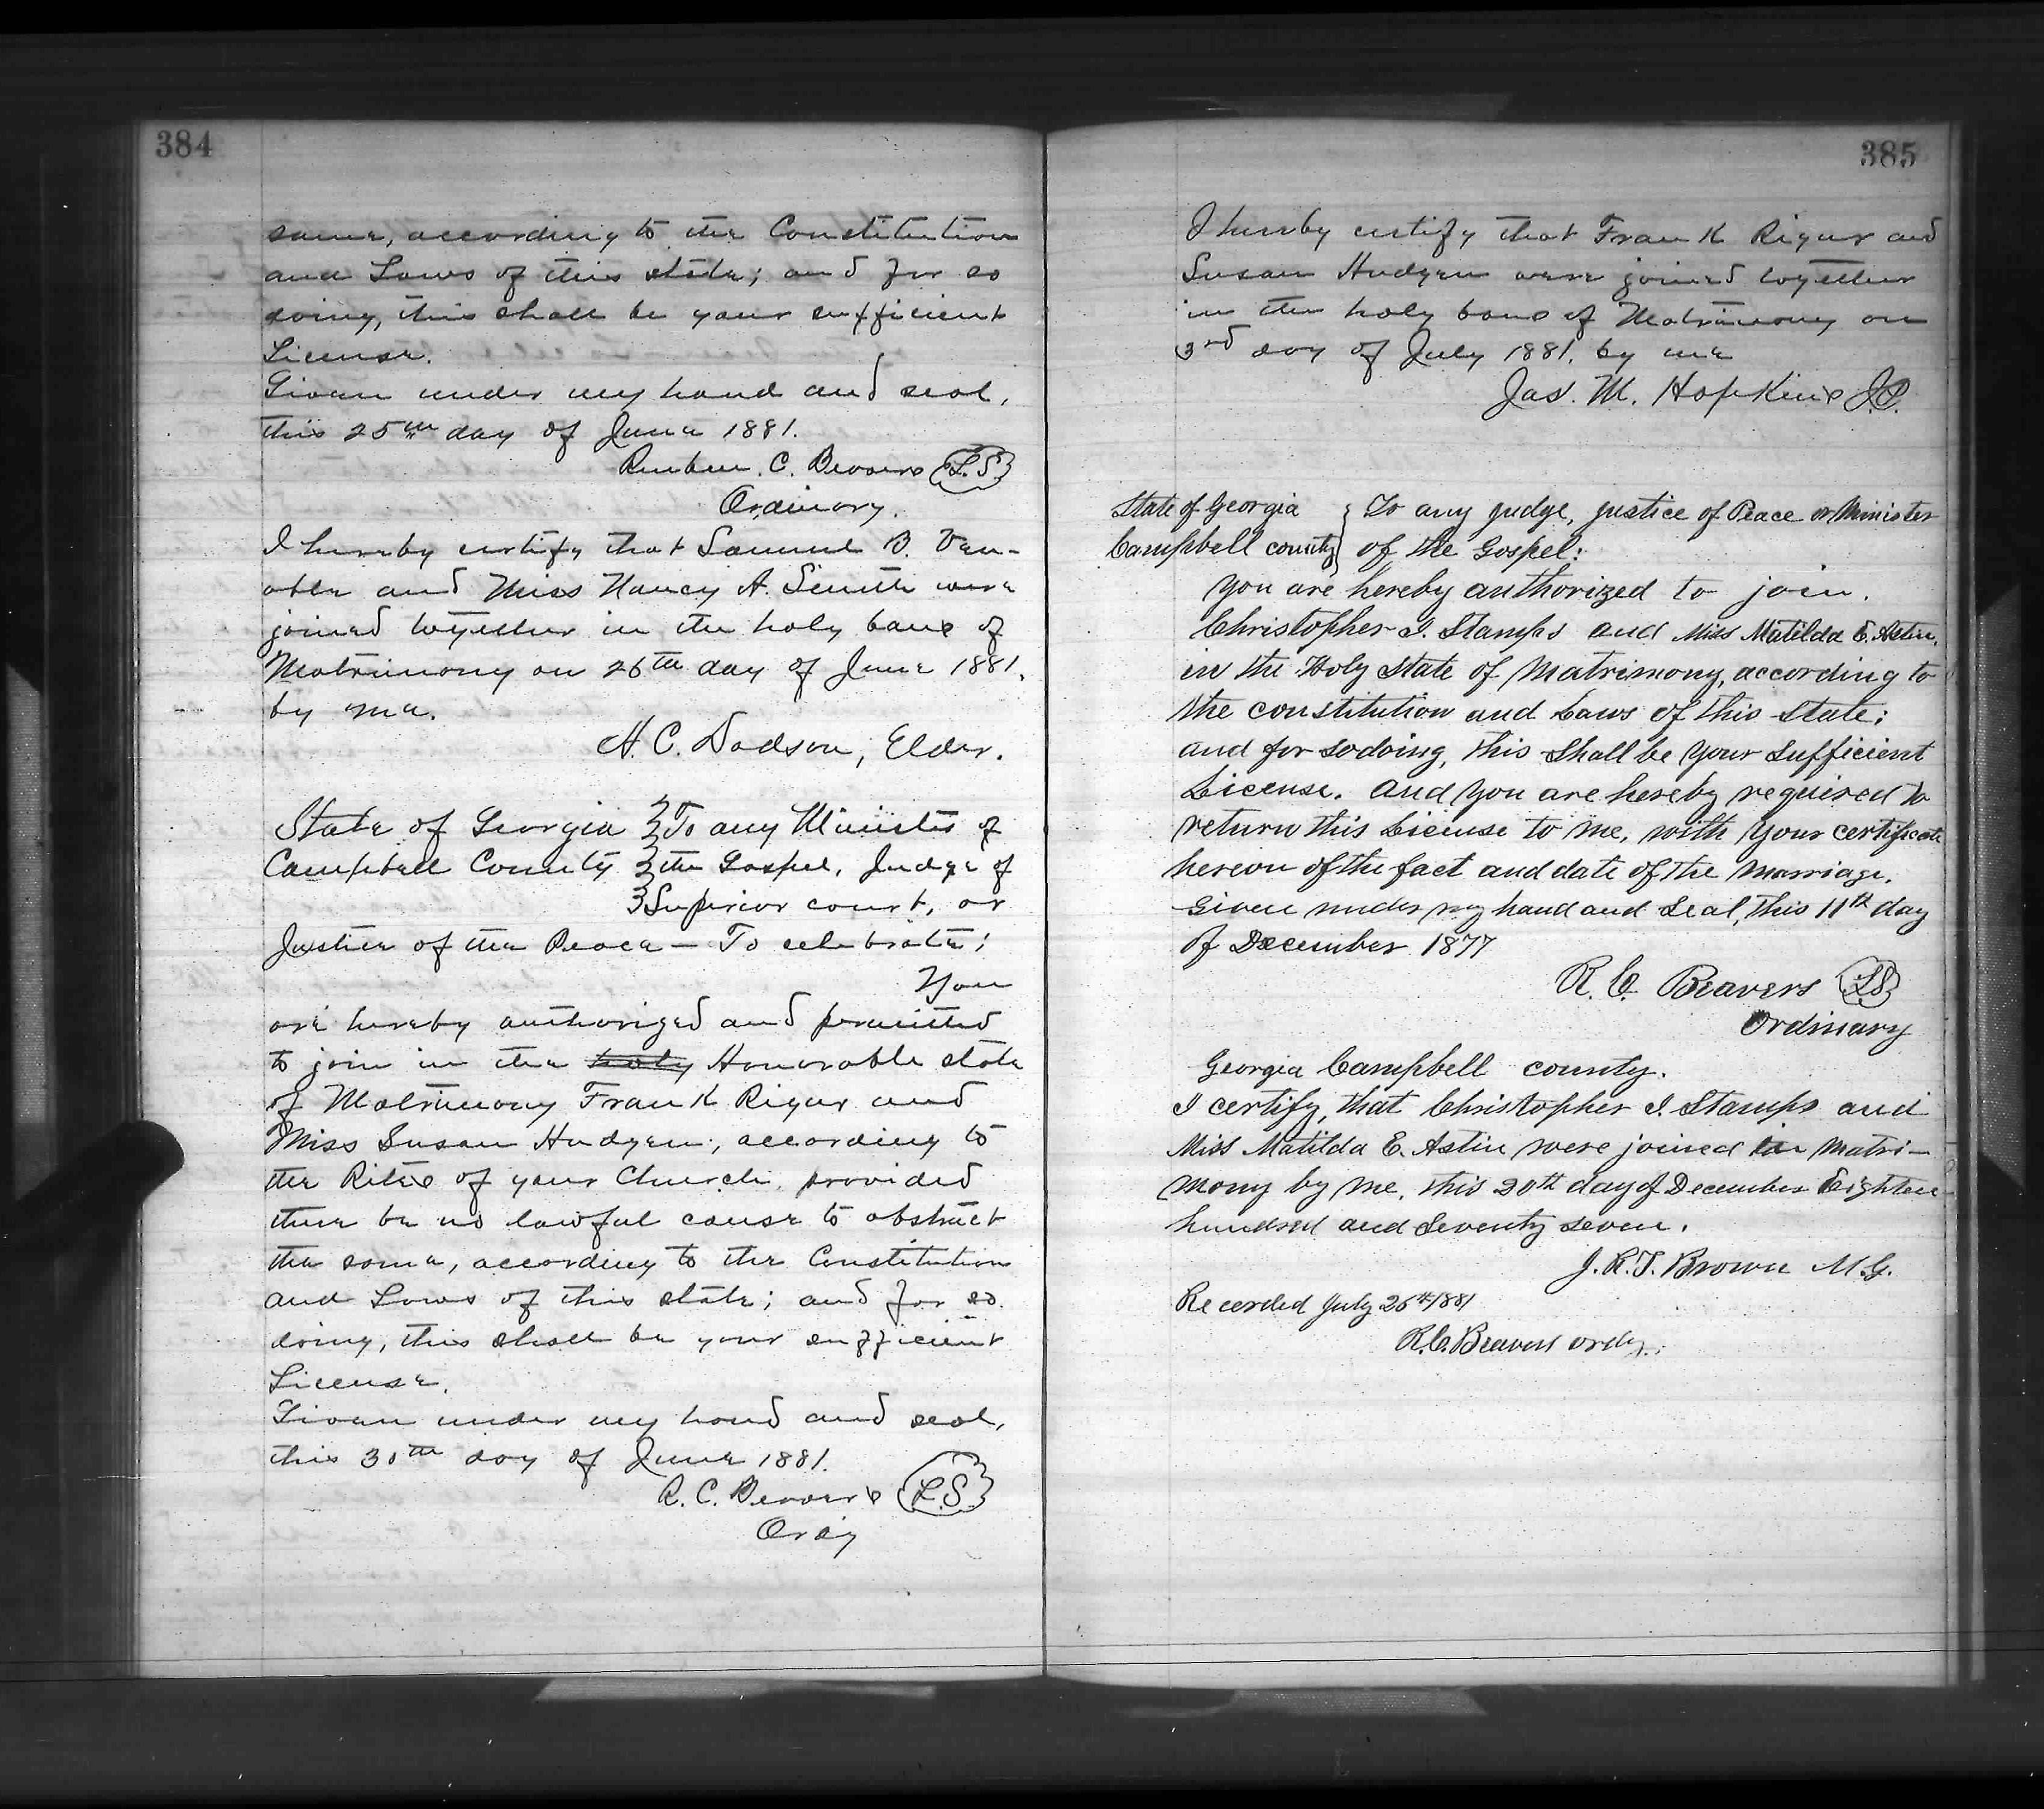 384
same, according to the Constitution
and Laws of this state; and for so
doing, this shall be your sufficient
License.
Given under my hand and seal,
this 25th day of June 1881.
Reuben. C. Beavers L.S.
Ordinary.
I hereby certify that Samuel B. Ven-
able and Miss Nancy A. Smith were
joined together in the holy bans of
Matrimony on 26th day of June 1881.
by me.
H. C. Dodson, Elder.
State of Georgia } To any Minister of
Campbell County } the Gospel, Judge of
} Superior court, or
Justice of the Peace — To celebrate;
You
are hereby authorized and permitted
to join in the holy Honorable state
of Matrimony Frank Rigur and
Miss Susan Hudgen, according to
the Rites of your Church, provided
there be no lawful cause to obstruct
the same, according to the Constitution
and Laws of this state; and for so
doing, this shall be your sufficient
License.
Given under my hand and seal,
this 30th day of June 1881.
R. C. Beavers L.S.
Ordy
385
I hereby certify that Frank Rigur and
Susan Hudgen were joined together
in the holy bans of Matrimony on
3rd day of July 1881. by me
Jas. M. Hopkins J.P.
State of Georgia } To any judge, justice of Peace or Minister
Campbell county } of the Gospel:
You are hereby authorized to join.
Christopher I. Stamps and Miss Matilda E. Astin.
in the Holy State of Matrimony, according to
the constitution and Laws of this State;
and for so doing, this Shall be your Sufficient
License. And you are hereby required to
return this License to me, with your certificate
hereon of the fact and date of the Marriage.
Given under my hand and Seal, this 11th day
of December 1877
R. C. Beavers LS
Ordinary
Georgia Campbell county.
I certify, that Christopher I. Stamps and
Miss Matilda E. Astin were joined in Matri-
mony by me, this 20th day of December Eighteen
hundred and Seventy seven.
J. R. T. Brown M.G.
Recorded July 26th 1881
R. C. Beavers ordy.